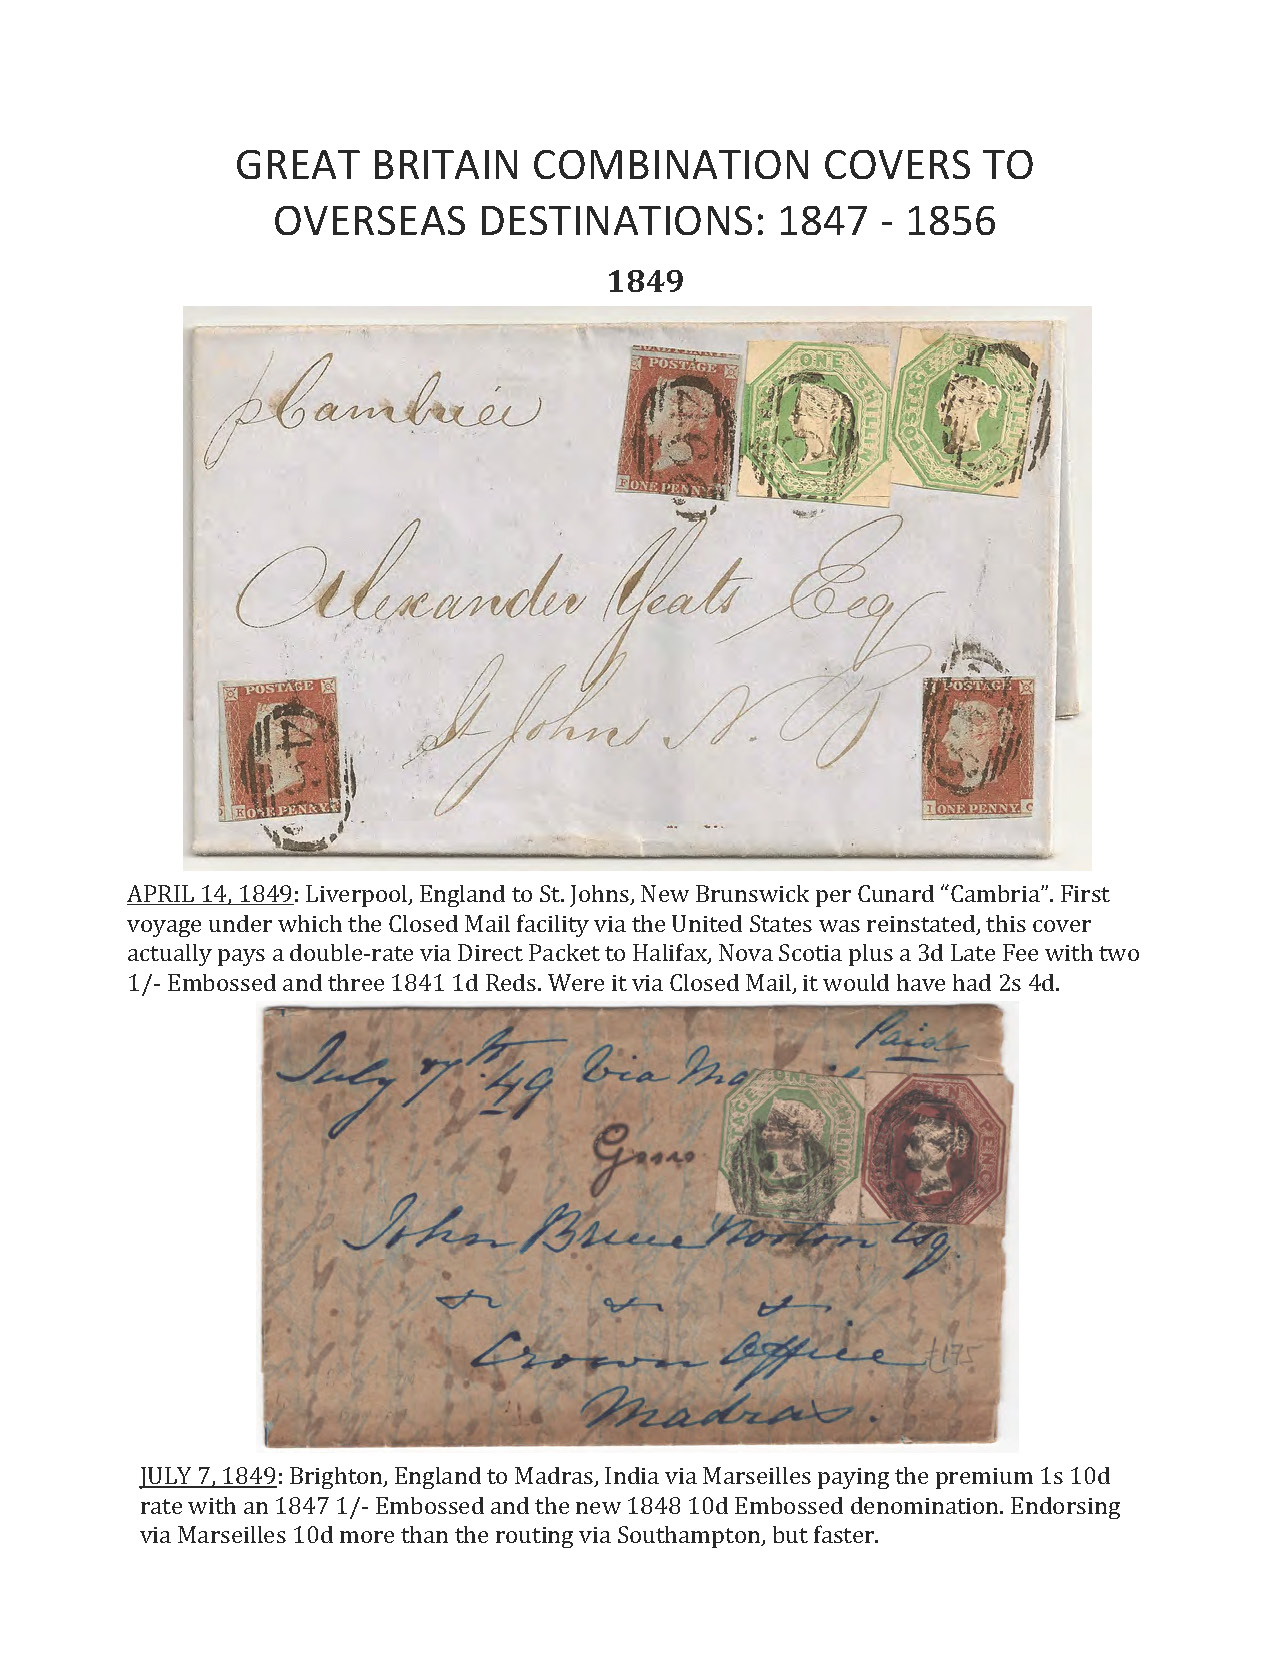 GREAT BRITAIN COMBINATION COVERS TO
OVERSEAS DESTINATIONS: 1847 - 1856
1849
p Cambria
POSTAGE
ONE PENNY
F
POSTAGE ONE SHILLING
POSTAGE ONE SHILLING
Alexander Yeats Esq
St Johns N. B
POSTAGE
K ONE PENNY
POSTAGE
I ONE PENNY C
APRIL 14, 1849: Liverpool, England to St. Johns, New Brunswick per Cunard “Cambria”. First
voyage under which the Closed Mail facility via the United States was reinstated, this cover
actually pays a double-rate via Direct Packet to Halifax, Nova Scotia plus a 3d Late Fee with two
1/- Embossed and three 1841 1d Reds. Were it via Closed Mail, it would have had 2s 4d.
Paid
July 7th 49 Via
POSTAGE ONE SHILLING
TEN PENCE
John Bruce Norton Esq.
Crown Office
£175
Madras.
JULY 7, 1849: Brighton, England to Madras, India via Marseilles paying the premium 1s 10d
rate with an 1847 1/- Embossed and the new 1848 10d Embossed denomination. Endorsing
via Marseilles 10d more than the routing via Southampton, but faster.